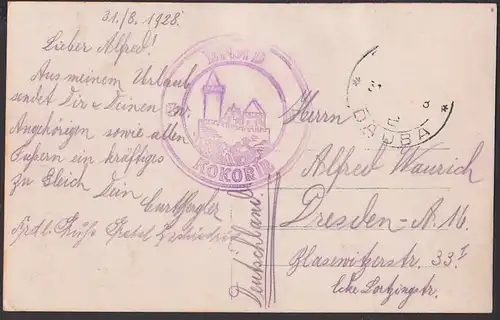 31./8. 1928.
Lieber Alfred!
Aus meinem Urlaub
sendet Dir & Deinen
Angehörigen sowie allen
ein kräftiges
Dein
Frdl. Grüße
HRAD
KOKOŘÍN
DAUBA
Herrn
Alfred Waurich
Dresden-A. 16.
Blasewitzerstr. 33 I
Ecke Lortzingstr.
Deutschland.